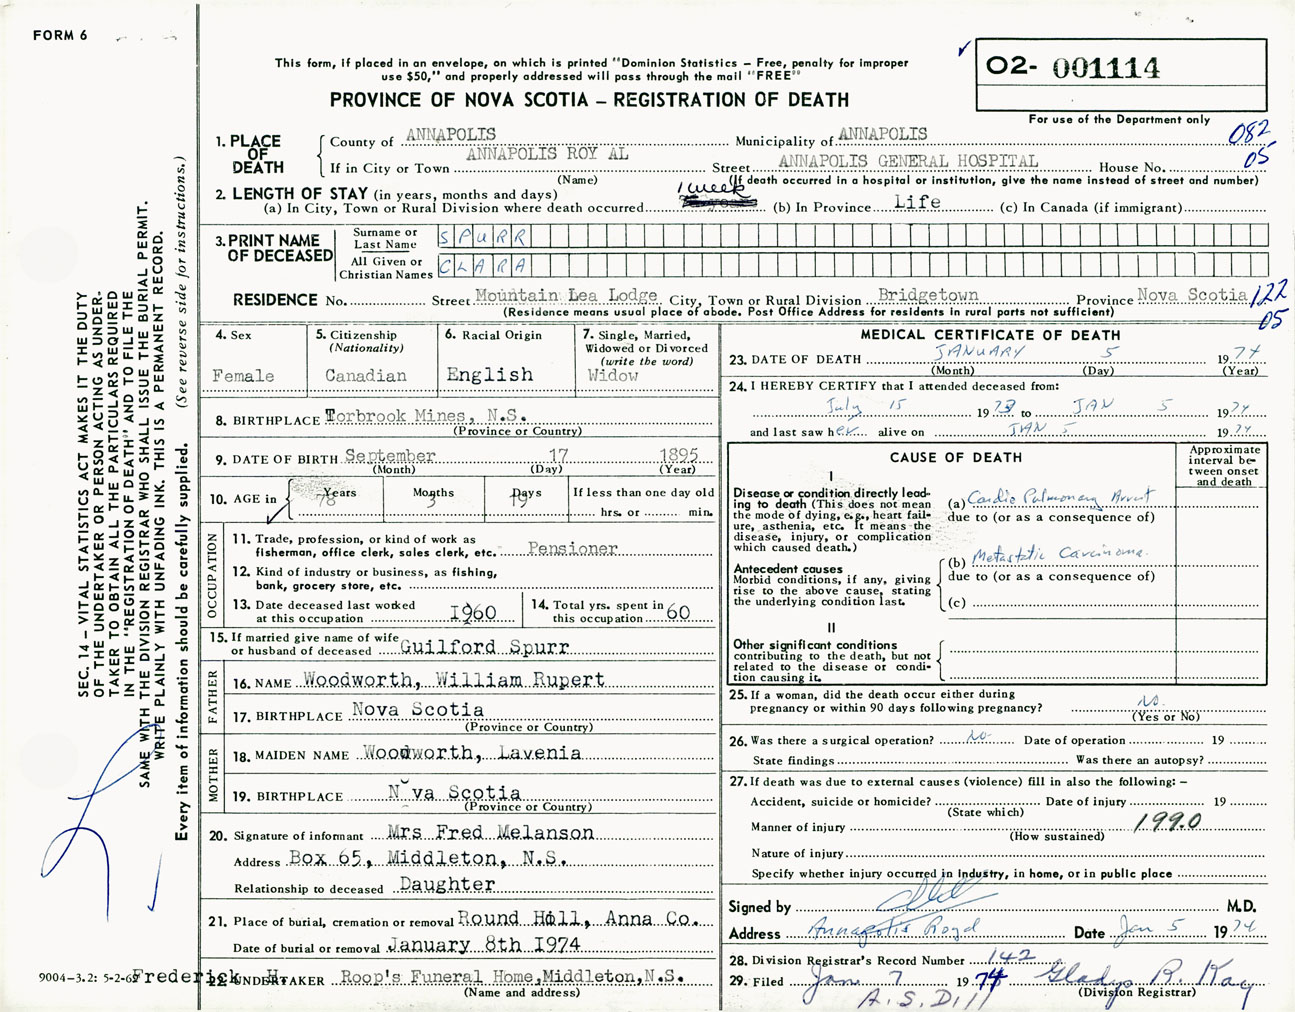 FORM 6
This form, if placed in an envelope, on which is printed "Dominion Statistics - Free, penalty for improper
use $50," and properly addressed will pass through the mail "FREE"
O2- 001114
PROVINCE OF NOVA SCOTIA - REGISTRATION OF DEATH
For use of the Department only
082
05
1. PLACE OF DEATH
County of ANNAPOLIS Municipality of ANNAPOLIS
If in City or Town ANNAPOLIS ROY AL Street ANNAPOLIS GENERAL HOSPITAL House No.
(Name) (If death occurred in a hospital or institution, give the name instead of street and number)
2. LENGTH OF STAY (in years, months and days)
(a) In City, Town or Rural Division where death occurred 1 week (b) In Province Life (c) In Canada (if immigrant)
3. PRINT NAME OF DECEASED
Surname or Last Name SPURR
All Given or Christian Names CLARA
RESIDENCE No. Street Mountain Lea Lodge City, Town or Rural Division Bridgetown Province Nova Scotia 122
05
(Residence means usual place of abode. Post Office Address for residents in rural parts not sufficient)
4. Sex
Female
5. Citizenship
(Nationality)
Canadian
6. Racial Origin
English
7. Single, Married,
Widowed or Divorced
(write the word)
Widow
8. BIRTHPLACE Torbrook Mines, N.S.
(Province or Country)
9. DATE OF BIRTH September 17 1895
(Month) (Day) (Year)
10. AGE in 78 Years 3 Months 19 Days If less than one day old
hrs. or min.
OCCUPATION
11. Trade, profession, or kind of work as
fisherman, office clerk, sales clerk, etc. Pensioner
12. Kind of industry or business, as fishing,
bank, grocery store, etc.
13. Date deceased last worked
at this occupation 1960
14. Total yrs. spent in
this occupation 60
15. If married give name of wife
or husband of deceased Guilford Spurr
FATHER
16. NAME Woodworth, William Rupert
17. BIRTHPLACE Nova Scotia
(Province or Country)
MOTHER
18. MAIDEN NAME Woodworth, Lavenia
19. BIRTHPLACE N va Scotia
(Province or Country)
20. Signature of informant Mrs Fred Melanson
Address Box 65, Middleton, N.S.
Relationship to deceased Daughter
21. Place of burial, cremation or removal Round Hill, Anna Co.
Date of burial or removal January 8th 1974
Frederick H.
22. UNDERTAKER Roop's Funeral Home, Middleton, N.S.
(Name and address)
9004-3.2: 5-2-69
MEDICAL CERTIFICATE OF DEATH
23. DATE OF DEATH JANUARY 5 1974
(Month) (Day) (Year)
24. I HEREBY CERTIFY that I attended deceased from:
July 15 1973 to JAN 5 1974
and last saw her alive on JAN 5 1974
CAUSE OF DEATH
Approximate
interval be-
tween onset
and death
I
Disease or condition directly lead-
ing to death (This does not mean
the mode of dying, e.g., heart fail-
ure, asthenia, etc. It means the
disease, injury, or complication
which caused death.)
(a) Cardio Pulmonary Arrest
due to (or as a consequence of)
Antecedent causes
Morbid conditions, if any, giving
rise to the above cause, stating
the underlying condition last.
(b) Metastatic Carcinoma
due to (or as a consequence of)
(c)
II
Other significant conditions
contributing to the death, but not
related to the disease or condi-
tion causing it.
25. If a woman, did the death occur either during
pregnancy or within 90 days following pregnancy? No.
(Yes or No)
26. Was there a surgical operation? No Date of operation 19
State findings Was there an autopsy?
27. If death was due to external causes (violence) fill in also the following: -
Accident, suicide or homicide? Date of injury 19
(State which)
Manner of injury 199.0
(How sustained)
Nature of injury
Specify whether injury occurred in Industry, in home, or in public place
Signed by M.D.
Address Annapolis Royal Date Jan 5 1974
28. Division Registrar's Record Number 142
29. Filed Jan 7 1974 Gladys R. Kay
(Division Registrar)
A.S.D.11
SEC. 14 - VITAL STATISTICS ACT MAKES IT THE DUTY
OF THE UNDERTAKER OR PERSON ACTING AS UNDER-
TAKER TO OBTAIN ALL THE PARTICULARS REQUIRED
IN THE "REGISTRATION OF DEATH" AND TO FILE THE
SAME WITH THE DIVISION REGISTRAR WHO SHALL ISSUE THE BURIAL PERMIT.
WRITE PLAINLY WITH UNFADING INK. THIS IS A PERMANENT RECORD.
Every item of information should be carefully supplied. (See reverse side for instructions.)